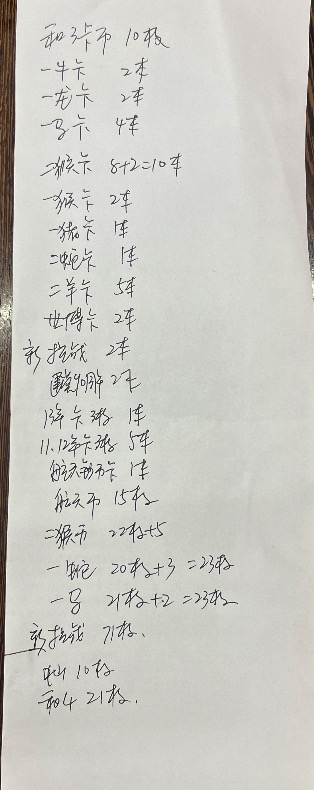 和3卡币 10枚
一牛卡 2本
一龙卡 2本
一马卡 4本
二猴卡 8+2=10本
一猴卡 2本
一猪卡 1本
二蛇卡 1本
二羊卡 5本
世博卡 2本
新抗战 2本
90周年 2本
13年卡 3枚 1本
11.12年卡 3枚 5本
航天钞币卡 1本
航天币 15枚
二猴币 22枚+5
一蛇 20枚+3=23枚
一马 21枚+2=23枚
新抗战 71枚.
10枚
和4 21枚.